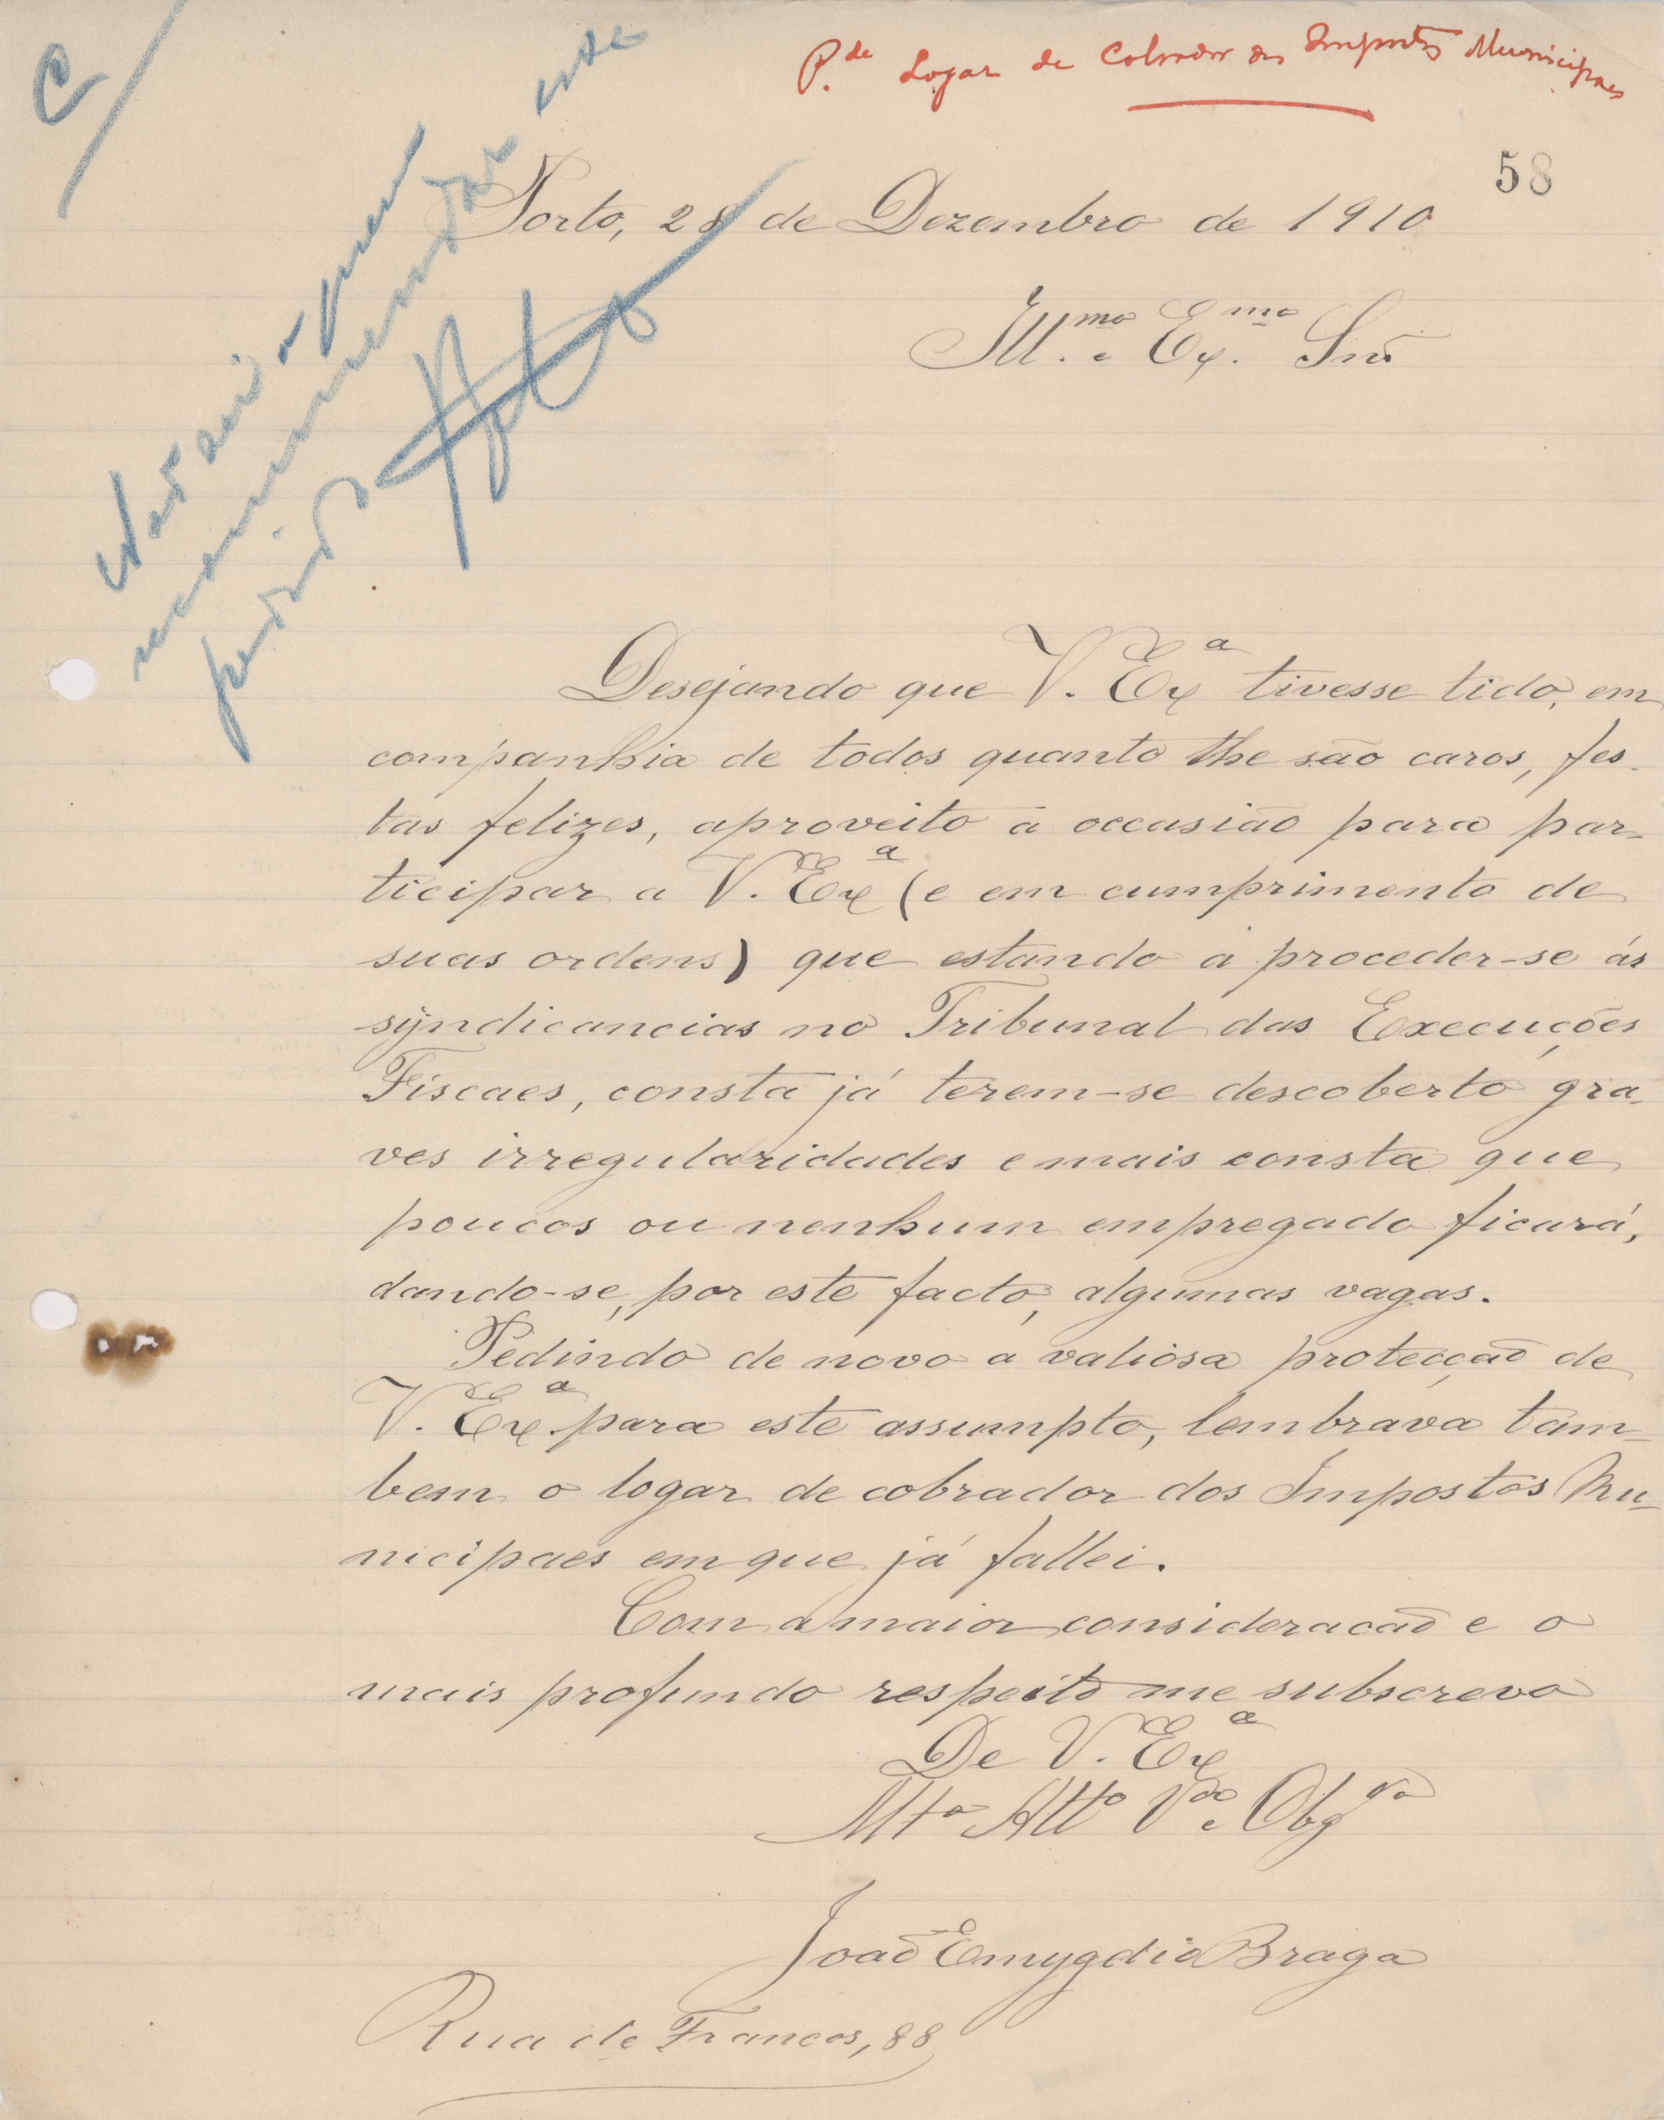 C
P.de Logar de Cobrador dos Impostos Municipaes
58
Porto, 28 de Dezembro de 1910
Ill.mo e Ex.mo Snr
este
Desejando que V. Exa tivesse tido, em
companhia de todos quanto lhe são caros, fes-
tas felizes, aproveito a occasião para par-
ticipar a V. Exa (e em cumprimento de
suas ordens) que estando a proceder-se ás
syndicancias no Tribunal das Execuções
Fiscaes, consta já terem-se descoberto gra-
ves irregularidades e mais consta que
poucos ou nenhum empregado ficará,
dando-se, por este facto, algumas vagas.
Pedindo de novo a valiosa protecção de
V. Exa para este assumpto, lembrava tam-
bem o logar de cobrador dos Impostos Mu-
nicipaes em que já fallei.
Com a maior consideracão e o
mais profundo respeito me subscrevo
De V. Exa
Mto Atto Vdo e Obgdo
João Emygdio Braga
Rua de Francos, 88